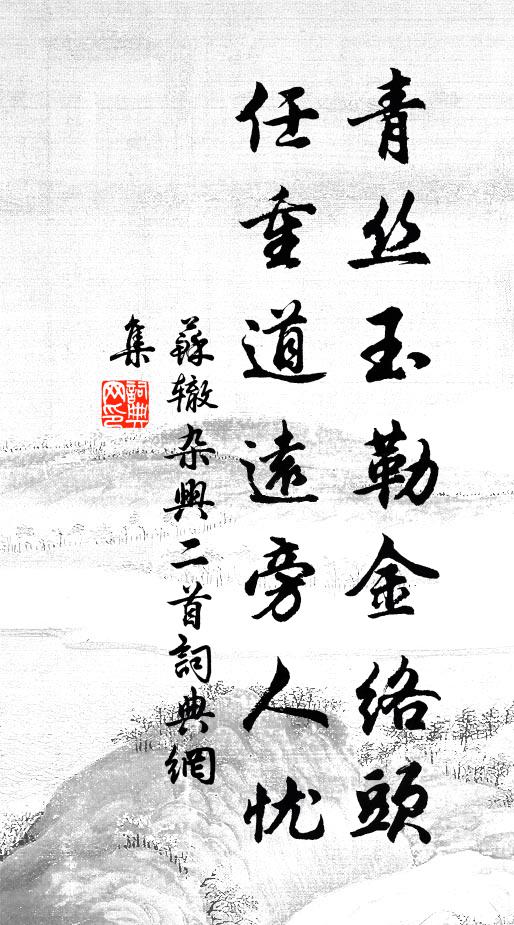 青丝玉勒金络頭
任重道遠旁人忧
蘇辙杂興二首詞典網
集
詞典網印